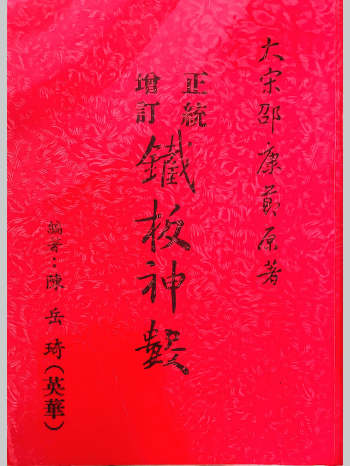 大宋邵康節原著
正統
增訂
鐵板神數
編著：陳岳琦(英華)